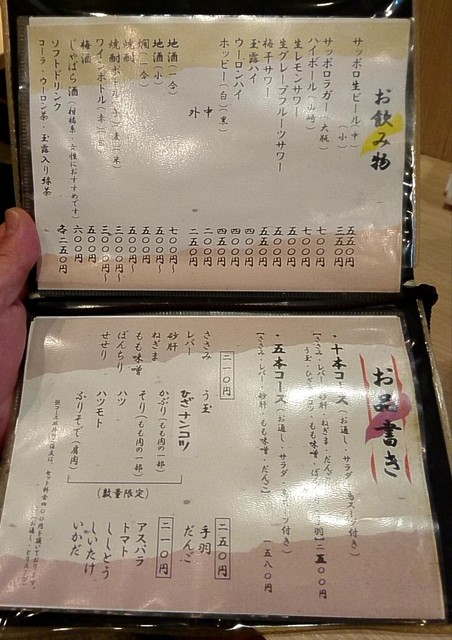 お飲み物
サッポロ生ビール(中) 五五〇円
(小) 三五〇円
サッポロラガー(大瓶) 七〇〇円
ハイボール(山崎) 七〇〇円
生レモンサワー 五五〇円
生グレープフルーツサワー 五五〇円
梅干サワー
玉露ハイ
ウーロンハイ
ホッピー(白)(黒)
中 二〇〇円
外 二五〇円
地酒(一合) 七〇〇円~
地酒(小) 五〇〇円~
燗(一合) 五五〇円
焼酎 五〇〇円~
焼酎ボトル
ワインボトル(赤)(白)
梅酒 五〇〇円
じゃばら酒(柑橘系・女性におすすめです) 六〇〇円
ソフトドリンク 各二五〇円
コーラ・ウーロン茶・玉露入り緑茶
お品書き
・十本コース(お通し・サラダ・鳥スープ付き)
・五本コース(お通し・サラダ・鳥スープ付き) 一五八〇円
【ささみ・レバー・砂肝・もも味噌・だんご】
二一〇円
ささみ
レバー
砂肝
ねぎま
もも味噌
ぼんちり
せせり
う玉
ひざナンコツ
かぶり(もも肉の一部)
そり(もも肉の一部)
ハツ
ハツモト
ふりそで(肩肉)
(数量限定)
二五〇円
手羽
だんご
二一〇円
アスパラ
トマト
ししとう
しいたけ
いかだ